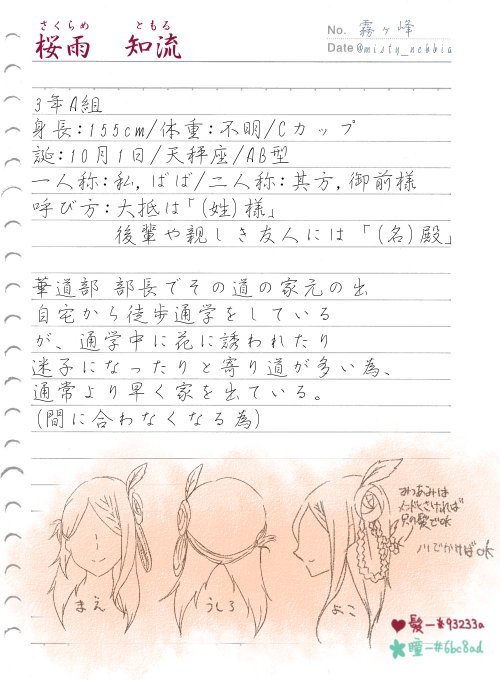 さくらめ ともる
桜雨 知流
No. 霧ヶ峰
Date @misty_nebbia
3年A組
身長:155cm/体重:不明/Cカップ
誕:10月1日/天秤座/AB型
一人称:私,ばば/二人称:其方,御前様
呼び方:大抵は「(姓)様」
後輩や親しき友人には「(名)殿」
華道部 部長でその道の家元の出
自宅から徒歩通学をしている
が、通学中に花に誘われたり
迷子になったりと寄り道が多い為、
通常より早く家を出ている。
(間に合わなくなる為)
みつあみは
メンドくさければ
只の髪でOK
ノリでかけばOK
まえ
うしろ
よこ
♥髪-#93233a
瞳-#6bc8ad